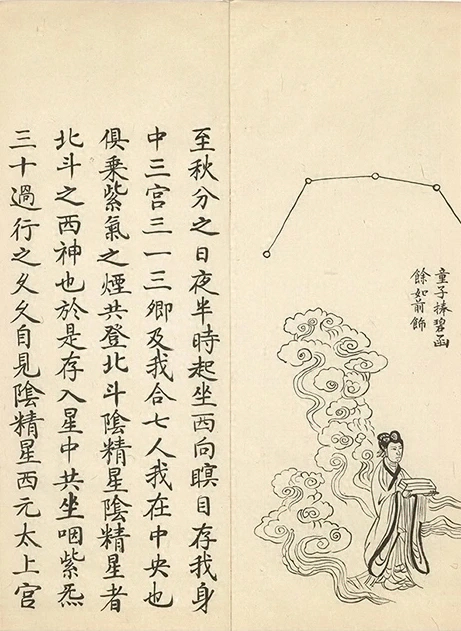 童子捧碧函
餘如前飾
至秋分之日夜半時起坐西向瞑目存我身
中三宮三一三卿及我合七人我在中央也
俱乗紫氣之煙共登北斗陰精星陰精星者
北斗之西神也於是存入星中共坐咽紫炁
三十過行之久久自見陰精星西元太上宮